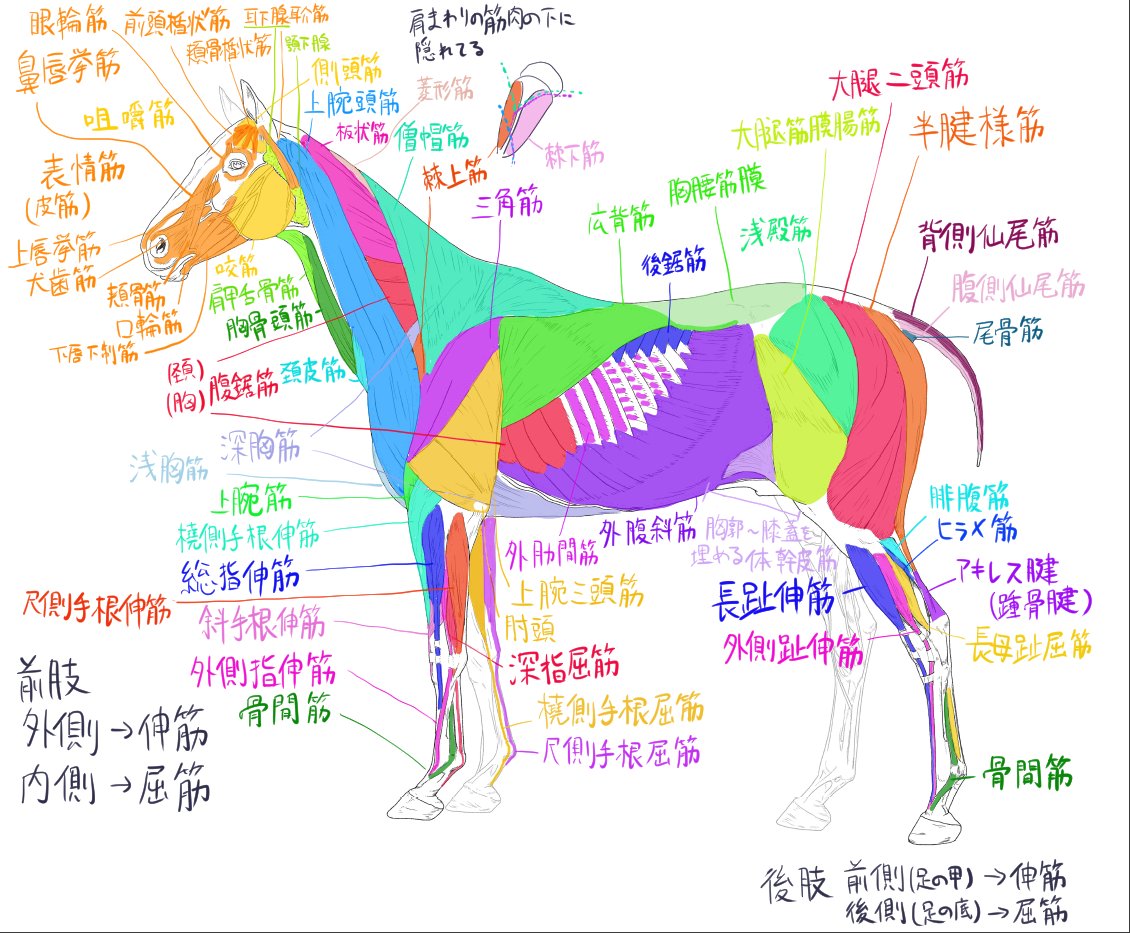 眼輪筋
前頭楯状筋
耳下腺耳介筋
頬骨楯状筋
顎下腺
鼻唇挙筋
側頭筋
咀嚼筋
上腕頭筋
菱形筋
肩まわりの筋肉の下に
隠れてる
棘下筋
板状筋
僧帽筋
棘上筋
三角筋
表情筋
(皮筋)
上唇挙筋
犬歯筋
頬筋
口輪筋
下唇下制筋
咬筋
肩甲舌骨筋
胸骨頭筋
(頚)
(胸)腹鋸筋
頚皮筋
広背筋
胸腰筋膜
後鋸筋
浅殿筋
大腿筋膜腸筋
大腿二頭筋
半腱様筋
背側仙尾筋
腹側仙尾筋
尾骨筋
深胸筋
浅胸筋
上腕筋
橈側手根伸筋
総指伸筋
尺側手根伸筋
斜手根伸筋
外側指伸筋
骨間筋
外肋間筋
外腹斜筋
胸郭~膝蓋を
埋める体幹皮筋
上腕三頭筋
肘頭
深指屈筋
橈側手根屈筋
尺側手根屈筋
腓腹筋
ヒラメ筋
アキレス腱
(踵骨腱)
長趾伸筋
外側趾伸筋
長母趾屈筋
骨間筋
前肢
外側→伸筋
内側→屈筋
後肢 前側(足の甲)→伸筋
後側(足の底)→屈筋